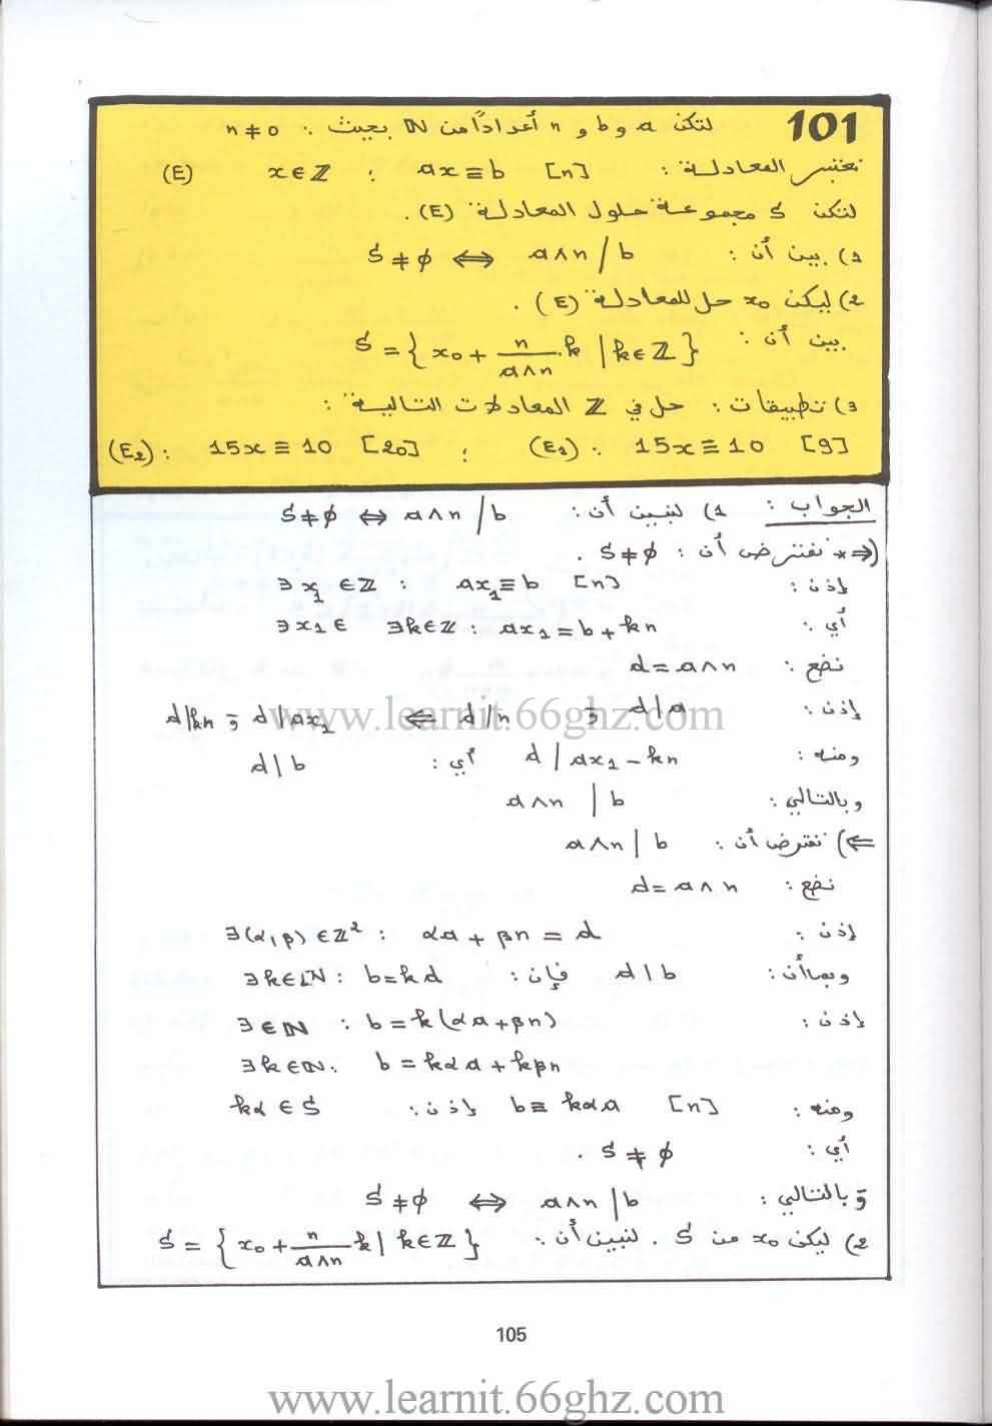 101 لتكن a و b و n أعدادًا من ℕ بحيث : n ≠ 0
نعتبر المعادلة : ax ≡ b [n] ; x ∈ ℤ (E)
لتكن S مجموعة حلول المعادلة (E) .
1) بين أن : a∧n / b ⟺ S ≠ ∅
2) ليكن x₀ حل للمعادلة (E) .
بين أن : S = { x₀ + n/(a∧n) .k | k ∈ ℤ }
3) تطبيقات : حل في ℤ المعادلات التالية :
(E₁) : 15x ≡ 10 [9] ; (E₂) : 15x ≡ 10 [20]
الجواب : 1) لنبين أن : S ≠ ∅ ⟺ a∧n / b
(⇒ * نفترض أن : S ≠ ∅ .
إذن : ∃ x₁ ∈ ℤ : ax₁ ≡ b [n]
أي : ∃ x₁ ∈ ∃k ∈ ℤ : ax₁ = b + kn
نضع : d = a∧n
إذن : d/a و d/n ⇐ d/ax₁ و d/kn
ومنه : d / ax₁ - kn أي : d | b
وبالتالي : a∧n | b
⇐) نفترض أن : a∧n | b
نضع : d = a∧n
إذن : ∃(α,β) ∈ ℤ² : αa + βn = d
وبما أن : d | b فإن : ∃k ∈ ℕ : b = kd
إذن : ∃ ∈ ℕ : b = k(αa + βn)
∃k ∈ ℕ : b = kαa + kβn
ومنه : b ≡ kαa [n] إذن : kα ∈ S
أي : S ≠ ∅ .
وبالتالي : S ≠ ∅ ⟺ a∧n | b
2) ليكن x₀ من S . لنبين أن : S = { x₀ + n/(a∧n) k | k ∈ ℤ }
105
www.learnit.66ghz.com
www.learnit.66ghz.com